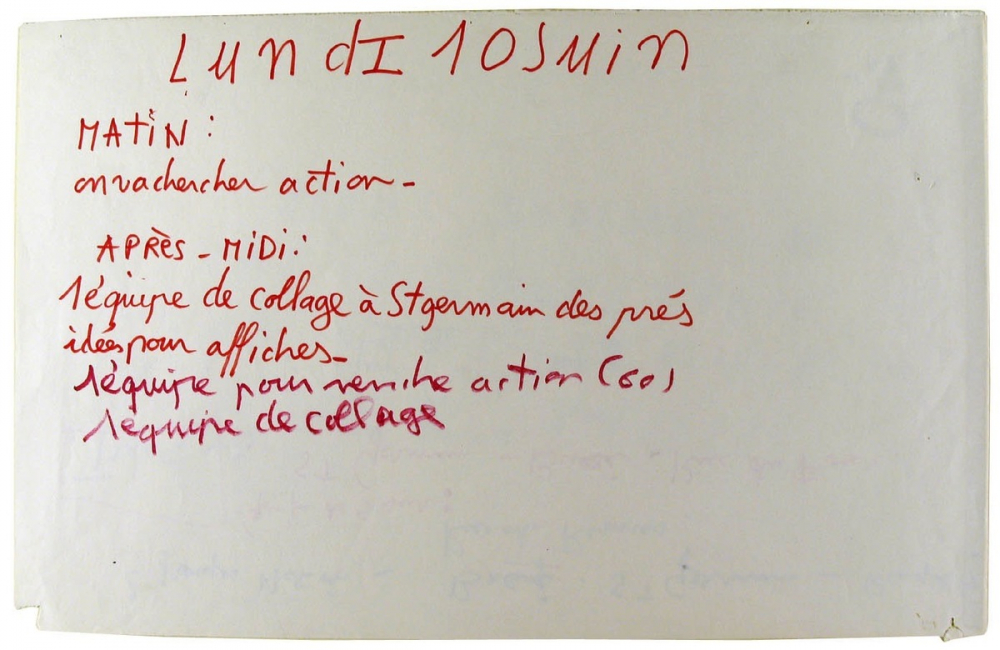 Lundi 10 Juin
MATIN :
on va chercher action -
APRÈS - MIDI :
1 équipe de collage à St germain des prés
idées pour affiches -
1 équipe pour vendre action (60)
1 équipe de collage